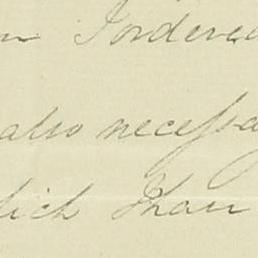 n I ordered
also necessa
hich Than